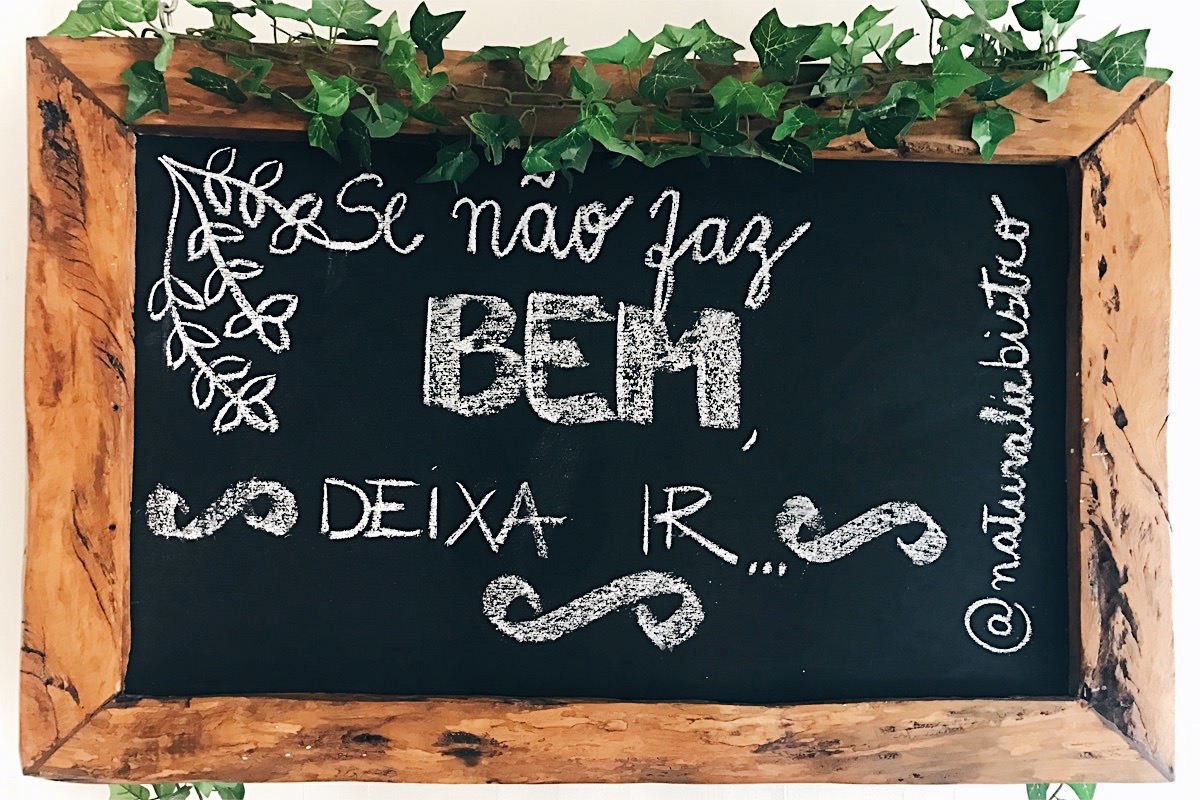 Se não faz
BEM,
DEIXA IR...
@naturaliebistro